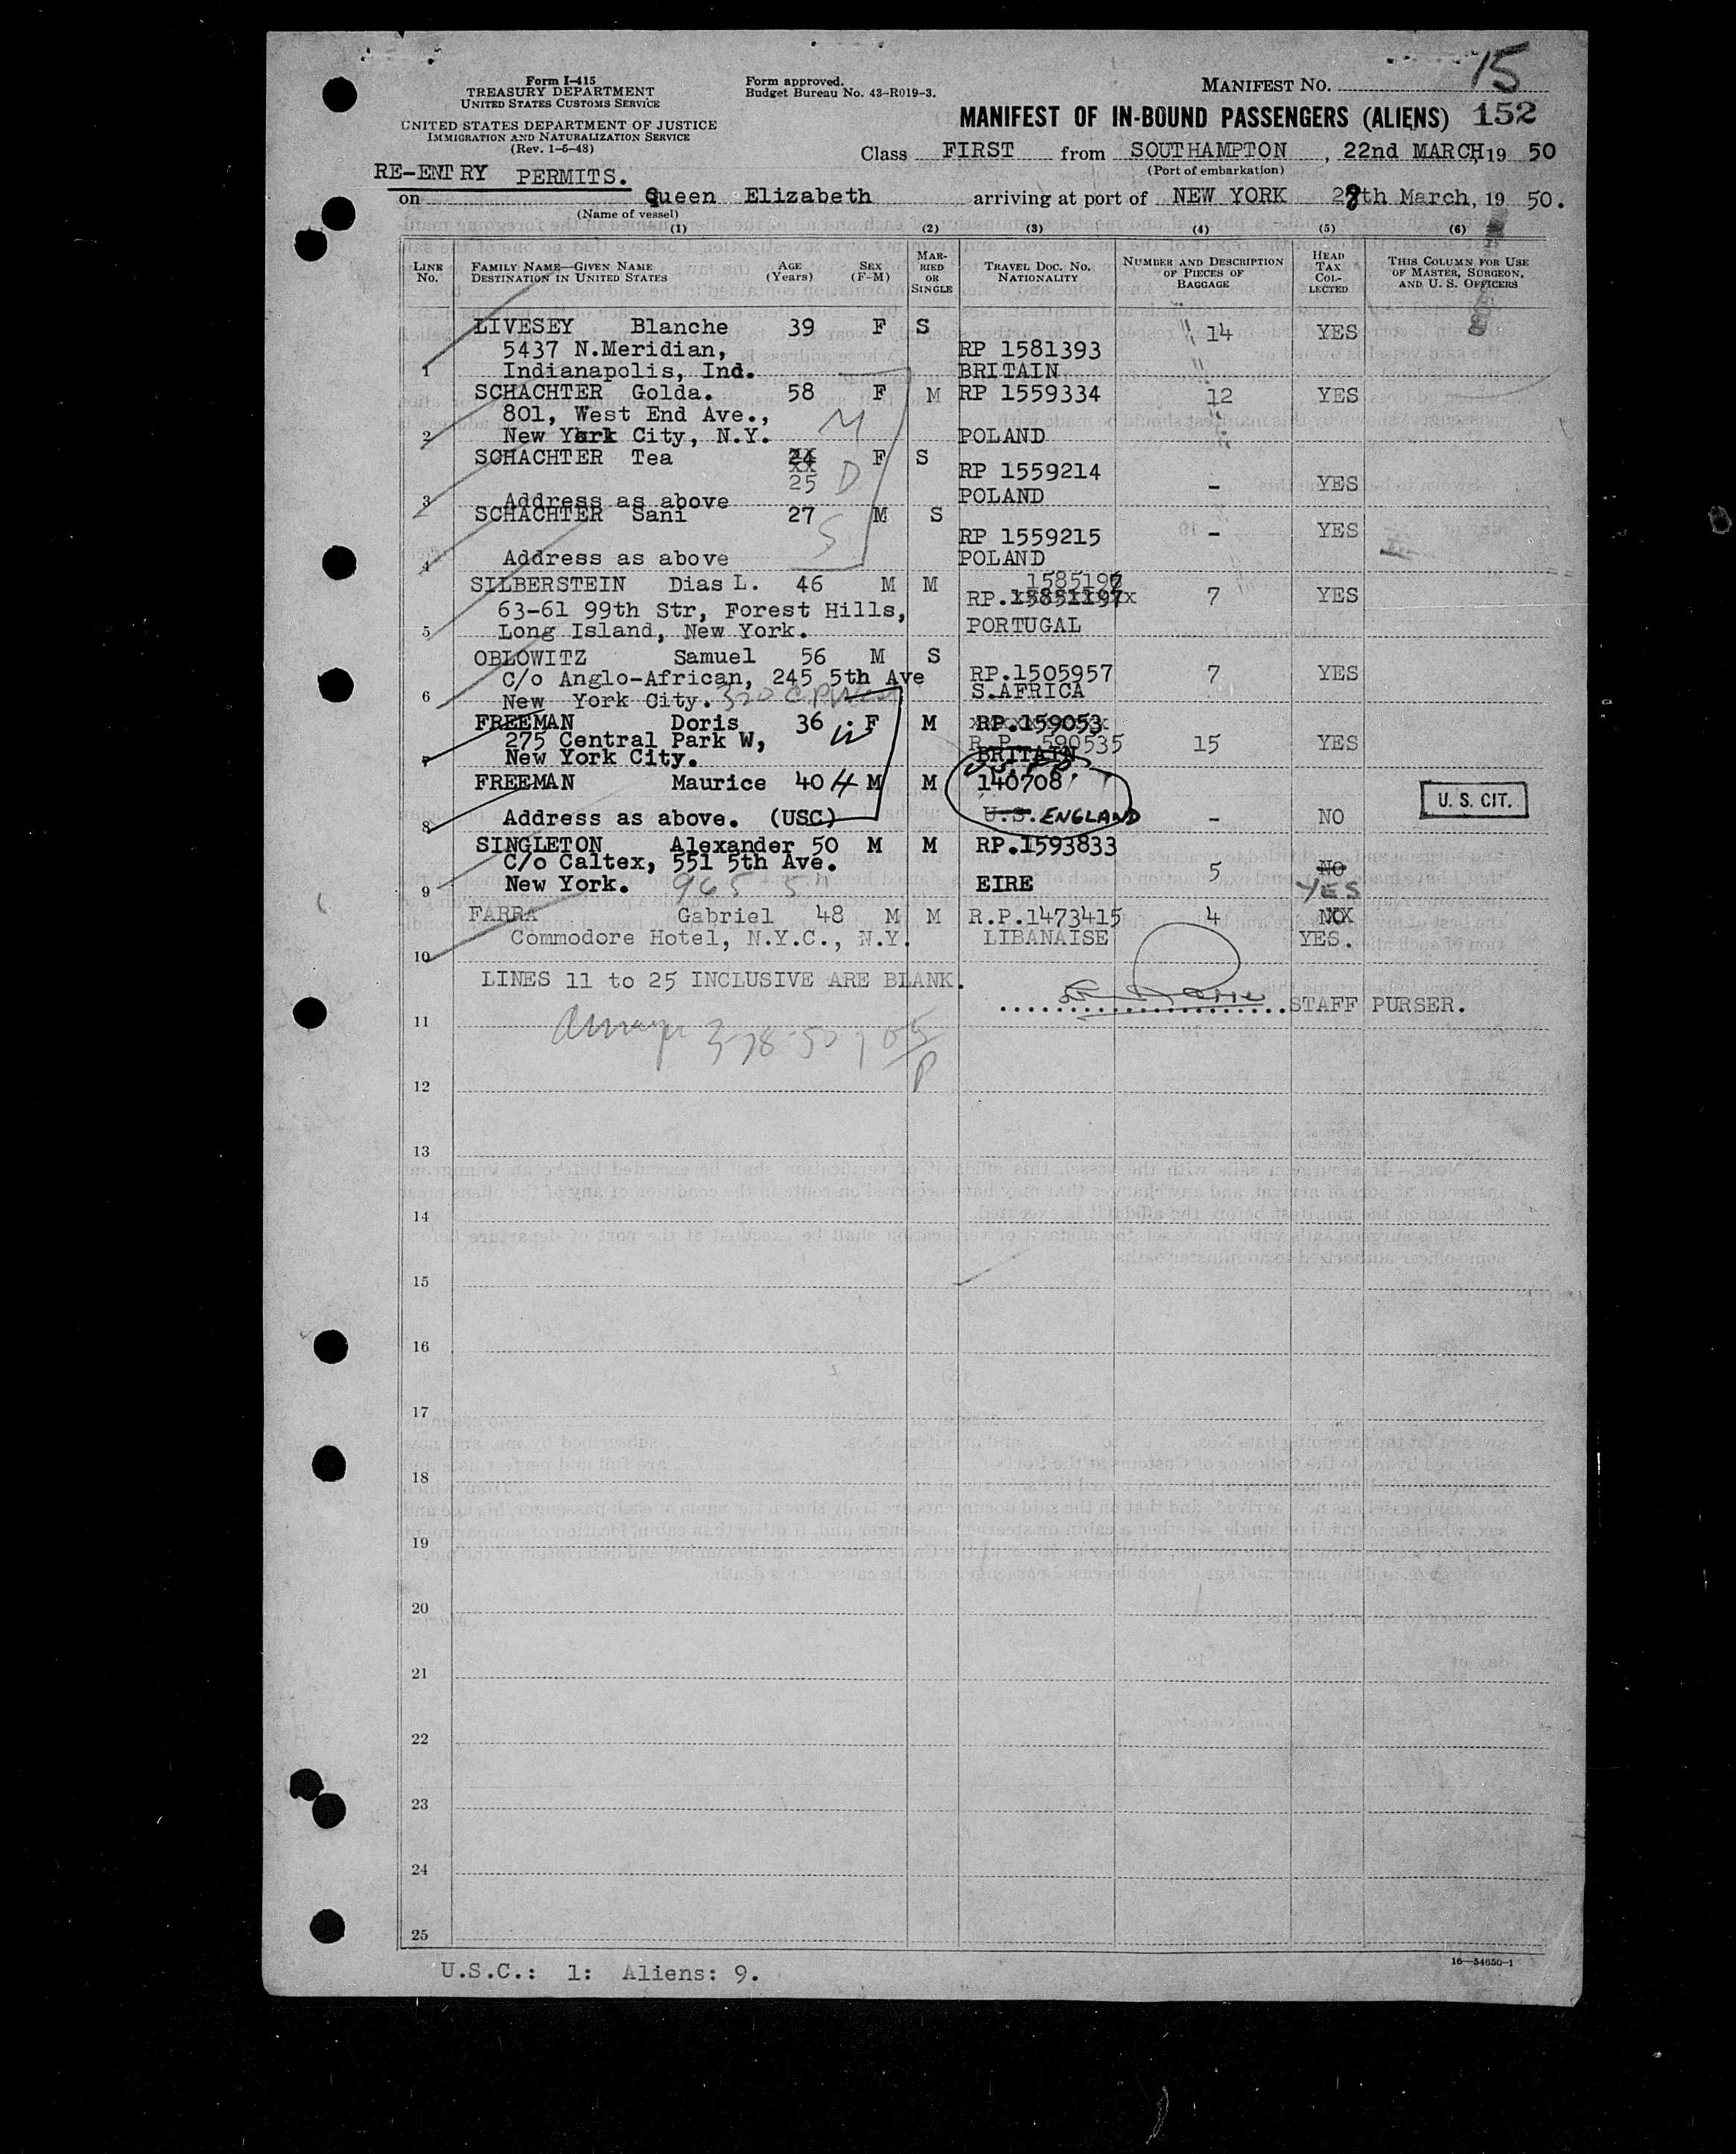 Form I-415
TREASURY DEPARTMENT
UNITED STATES CUSTOMS SERVICE
UNITED STATES DEPARTMENT OF JUSTICE
IMMIGRATION AND NATURALIZATION SERVICE
(Rev. 1-5-48)
Form approved.
Budget Bureau No. 43-R019-3.
MANIFEST NO. 15
MANIFEST OF IN-BOUND PASSENGERS (ALIENS) 152
Class FIRST from SOUTHAMPTON, 22nd MARCH, 19 50
(Port of embarkation)
RE-ENTRY PERMITS.
on Queen Elizabeth arriving at port of NEW YORK 28th March, 19 50.
(Name of vessel)
(1) (2) (3) (4) (5) (6)
LINE No. FAMILY NAME—GIVEN NAME DESTINATION IN UNITED STATES AGE (Years) SEX (F-M) MARRIED OR SINGLE TRAVEL DOC. NO. NATIONALITY NUMBER AND DESCRIPTION OF PIECES OF BAGGAGE HEAD TAX COLLECTED THIS COLUMN FOR USE OF MASTER, SURGEON, AND U. S. OFFICERS
LIVESEY Blanche 39 F S 14 YES
5437 N.Meridian, RP 1581393
1 Indianapolis, Ind. BRITAIN
SCHACHTER Golda. 58 F M RP 1559334 12 YES
801, West End Ave., M
2 New York City, N.Y. POLAND
SCHACHTER Tea 24 F S
25 D RP 1559214 - YES
3 Address as above POLAND
SCHACHTER Sani 27 M S YES
S RP 1559215 -
4 Address as above POLAND
SILBERSTEIN Dias L. 46 M M 1585197
63-61 99th Str, Forest Hills, RP.15851197 7 YES
5 Long Island, New York. PORTUGAL
OBLOWITZ Samuel 56 M S
C/o Anglo-African, 245 5th Ave RP.1505957 7 YES
6 New York City. 320 C.P.West S.AFRICA
FREEMAN Doris 36 W F M RP.159053
275 Central Park W, R.P. 590535 15 YES
7 New York City. BRITAIN
FREEMAN Maurice 40 H M M 140708
8 Address as above. (USC) U.S. ENGLAND - NO U. S. CIT.
SINGLETON Alexander 50 M M RP.1593833
C/o Caltex, 551 5th Ave. 5 NO
9 New York. 965 5 EIRE YES
FARRA Gabriel 48 M M R.P.1473415 4 NO
10 Commodore Hotel, N.Y.C., N.Y. LIBANAISE YES.
LINES 11 to 25 INCLUSIVE ARE BLANK.
STAFF PURSER.
11
12
13
14
15
16
17
18
19
20
21
22
23
24
25
16—54650-1
U.S.C.: 1: Aliens: 9.